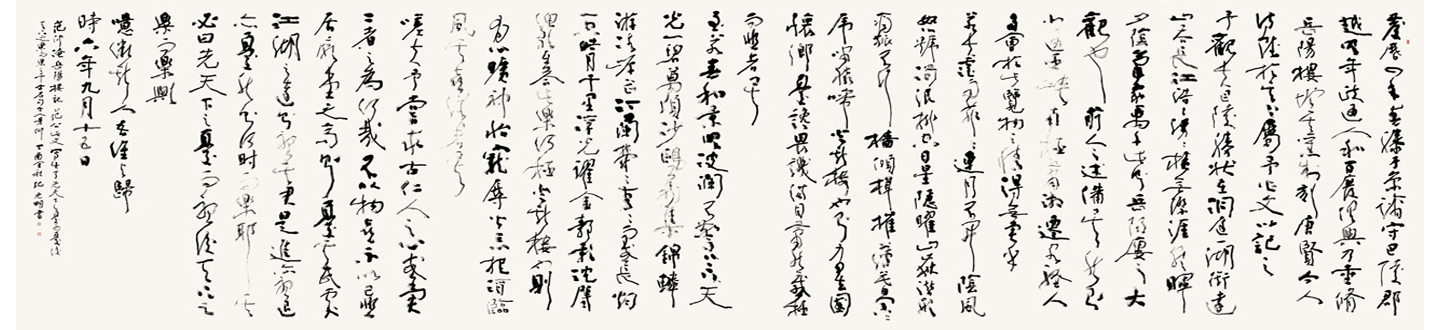 慶歷四年春滕子京謫守巴陵郡
越明年政通人和百廢俱興乃重脩
岳陽樓增其舊制刻唐賢今人
詩賦於其上屬予作文以記之
予觀夫巴陵勝狀在洞庭一湖銜遠
山吞長江浩浩湯湯橫無際涯朝暉
夕陰氣象萬千此則岳陽樓之大
觀也前人之述備矣然則
北通巫峽南極瀟湘遷客騷人
多會於此覽物之情得無異乎
若夫霪雨霏霏連月不開陰風
怒號濁浪排空日星隱曜山嶽潛形
商旅不行檣傾楫摧薄暮冥冥
虎嘯猿啼登斯樓也則有去國
懷鄉憂讒畏譏滿目蕭然感極
而悲者矣
至若春和景明波瀾不驚上下天
光一碧萬頃沙鷗翔集錦鱗
游泳岸芷汀蘭郁郁青青而或長煙
一空皓月千里浮光躍金靜影沈璧
漁歌互答此樂何極登斯樓也則
有心曠神怡寵辱皆忘把酒臨
風其喜洋洋者矣
嗟夫予嘗求古仁人之心或異
二者之為何哉不以物喜不以己悲
居廟堂之高則憂其民處
江湖之遠則憂其君是進亦憂退
亦憂然則何時而樂耶其
必曰先天下之憂而憂後天下之
樂而樂歟
噫微斯人吾誰與歸
時六年九月十五日
范仲淹岳陽樓記